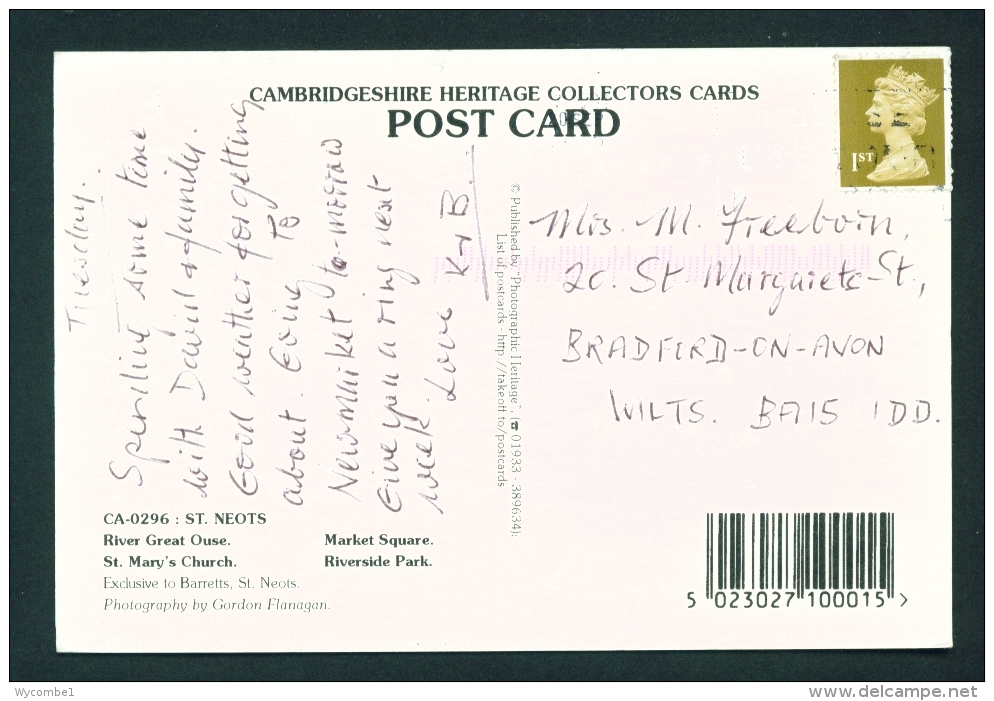 CAMBRIDGESHIRE HERITAGE COLLECTORS CARDS
POST CARD
1ST
Tuesday.
Spending some time
with David & family.
Good weather forgetting
about. Going to
Newmarket to-morrow
Give you a ring next
week.
Love K & B.
© Published by "Photographic Heritage", (☎ 01933 - 389634):
List of postcards - http://takeoff.to/postcards
Mrs. M. Freeborn,
20. St Margarets St.,
BRADFORD-ON-AVON
WILTS. BA15 1DD.
CA-0296 : ST. NEOTS
River Great Ouse. Market Square.
St. Mary's Church. Riverside Park.
Exclusive to Barretts, St. Neots.
Photography by Gordon Flanagan.
5 023027 100015 >
Wycombe1
www.delcampe.net